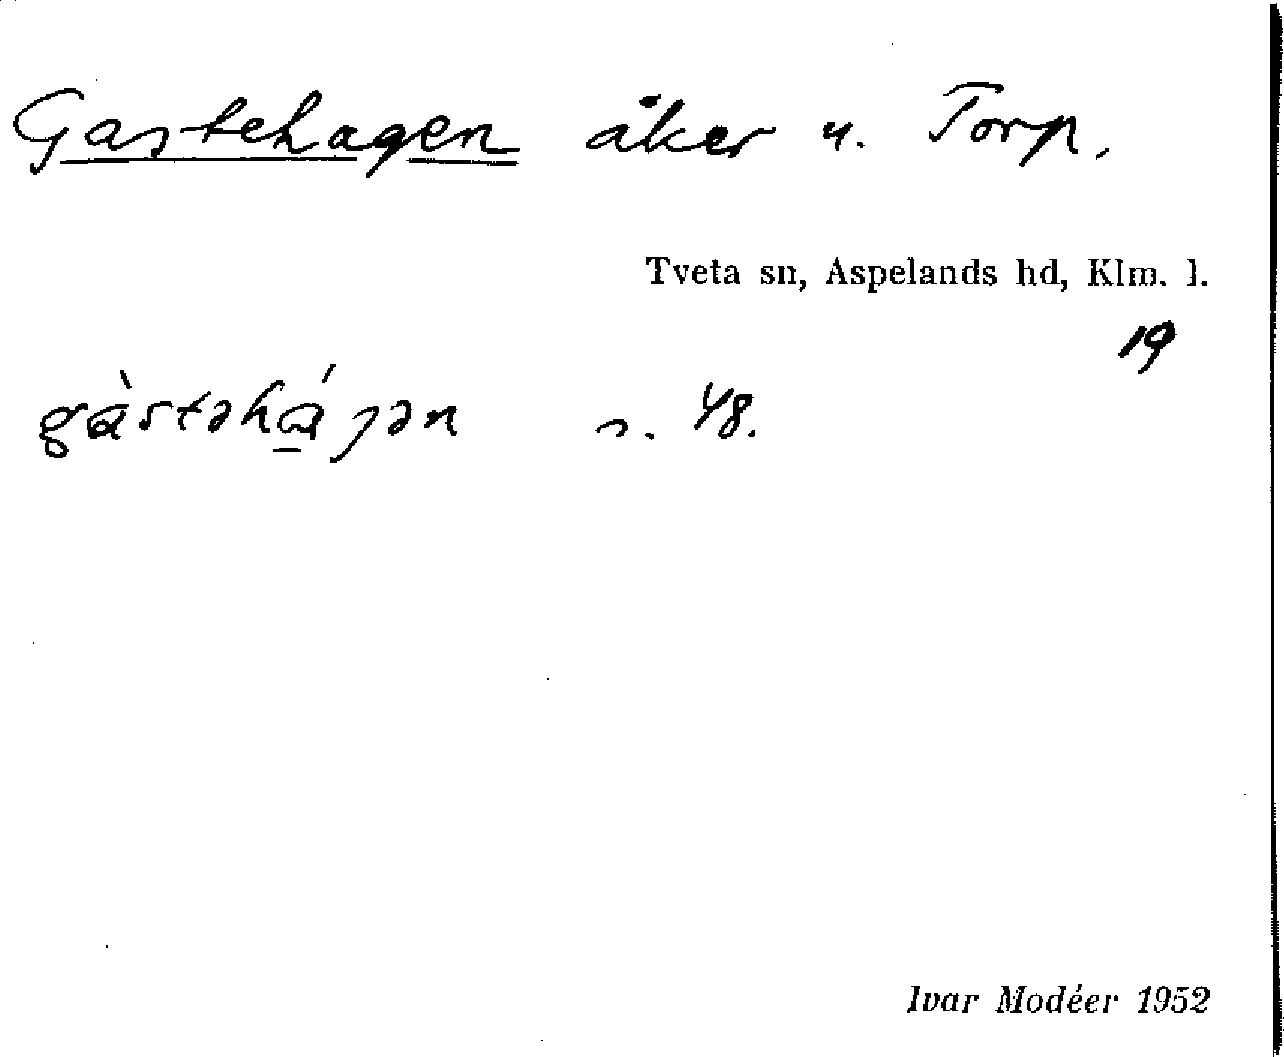 Gastehagen åker u. Torp.
Tveta sn, Aspelands hd, Klm. l.
19
gàstəhá̱ȷən s. 48.
Ivar Modéer 1952